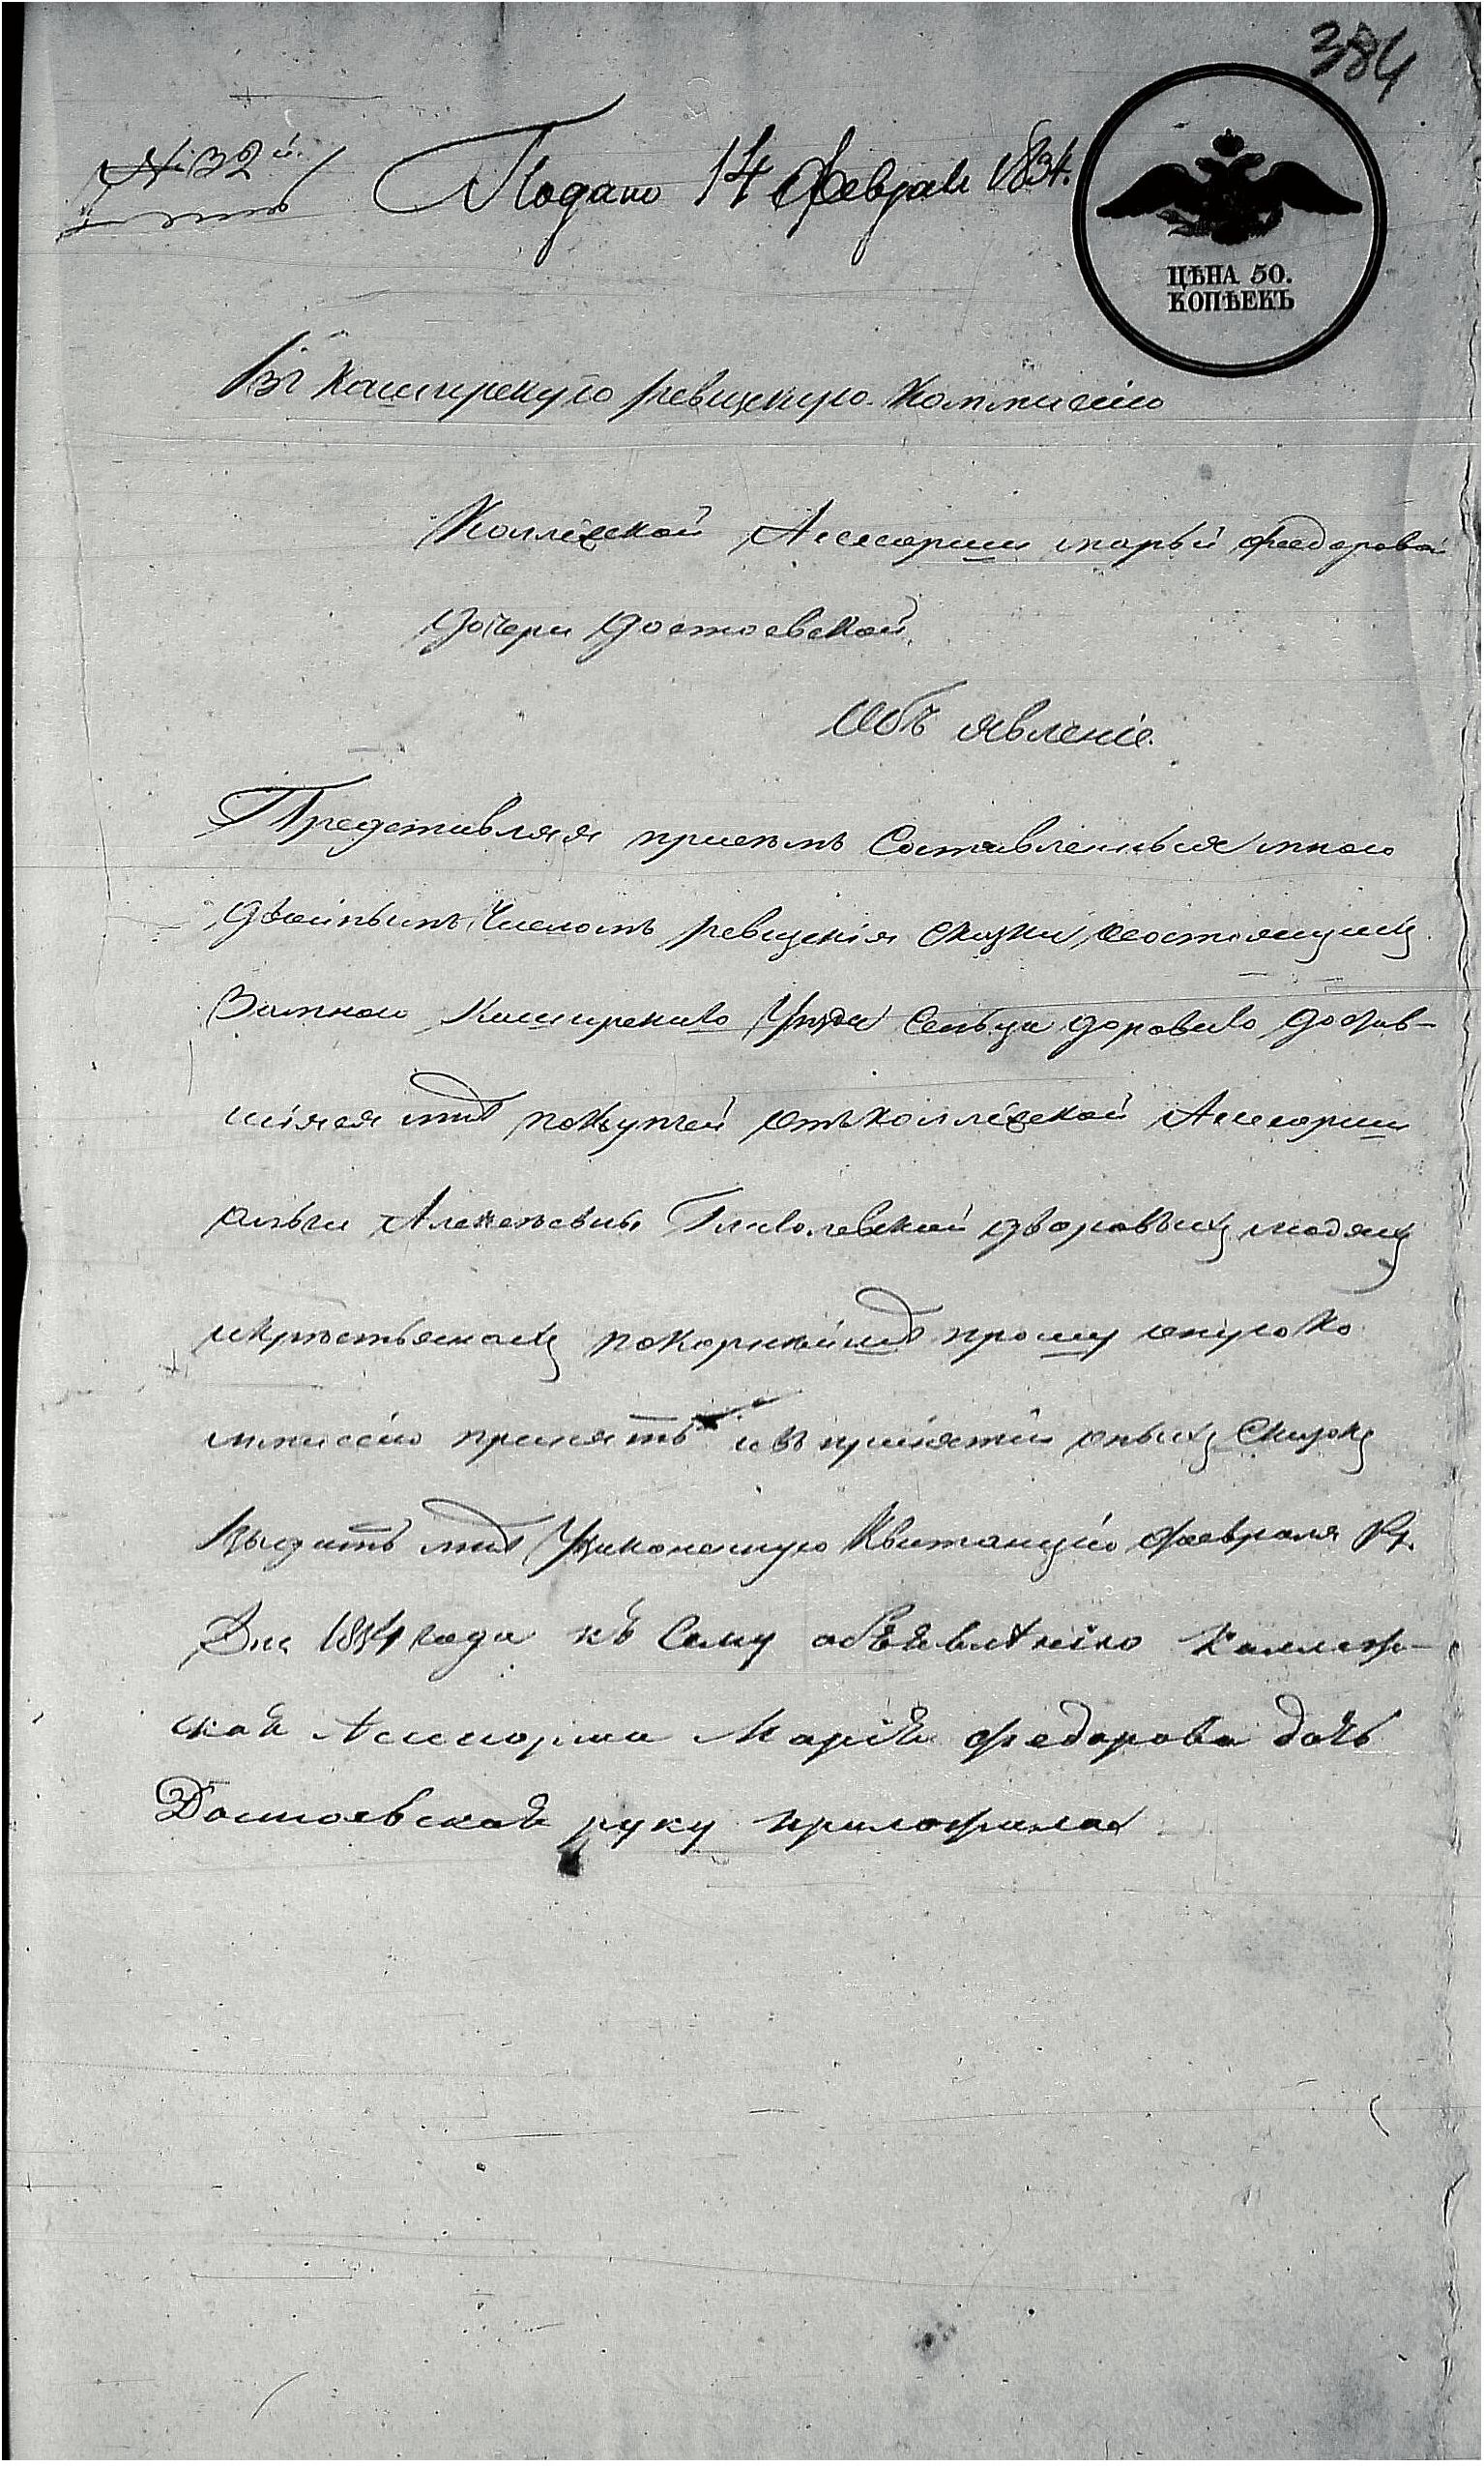 384
№ 32й.
Подано 14 Февраля 1834.
ЦѢНА 50.
КОПѢЕКЪ
Въ Каширскую ревизскую Коммисию
Коллежской Асесорши марьи Федоровой
дочери Достоевской
Объявленіе.
Представляя присемъ Составленныя мною
двойнымъ числомъ ревизскія сказки, состоящимъ
Замною Каширскаго Уѣзда Сельца Дароваго достав-
шіяся мнѣ покупкой отъ коллежской Асесорши
ольги Алексѣевны Глаголевской дворовымъ людямъ
икрестьянамъ покорнейше прошу оную ко
ммиссію принять ивъ принятіи оныхъ Сказокъ
выдать мнѣ Узаконенную Квитанцію февраля
Дня 1834 года къ Сему объявлению Коллеж-
ская Асесорша Марія федорова дочь
Достоевская руку приложила